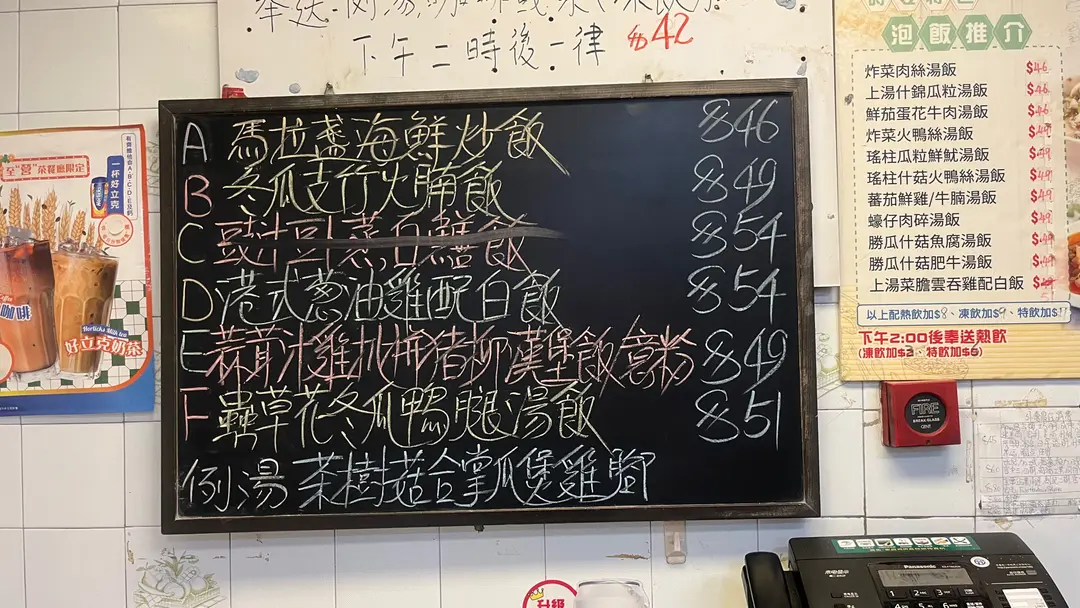 下午二時後一律 $42
A 馬拉盞海鮮炒飯 $46
B 冬瓜支竹火腩飯 $49
C 豉汁豆豉蒸白鱔飯 $54
D 港式蔥油雞配白飯 $54
E 蒜茸汁雞扒拼豬柳漢堡飯意粉 $49
F 蟲草花冬瓜鴨腿湯飯 $51
例湯 茶樹菇合掌瓜煲雞腳
泡飯推介
炸菜肉絲湯飯 $46
上湯什錦瓜粒湯飯 $46
鮮茄蛋花牛肉湯飯 $46
炸菜火鴨絲湯飯 $49
瑤柱瓜粒鮮魷湯飯 $49
瑤柱什菇火鴨絲湯飯 $49
蕃茄鮮雞/牛腩湯飯 $49
蠔仔肉碎湯飯 $49
勝瓜什菇魚腐湯飯
勝瓜什菇肥牛湯飯
上湯菜膽雲吞雞配白飯
以上配熱飲加$8、凍飲加$9、特飲加$11
下午2:00後奉送熱飲
(凍飲加$3・特飲加$5)
至"營"茶餐廳限定
一杯好立克
Horlicks Milk tea
好立克奶茶
咖啡
FIRE
BREAK GLASS
Panasonic
升級